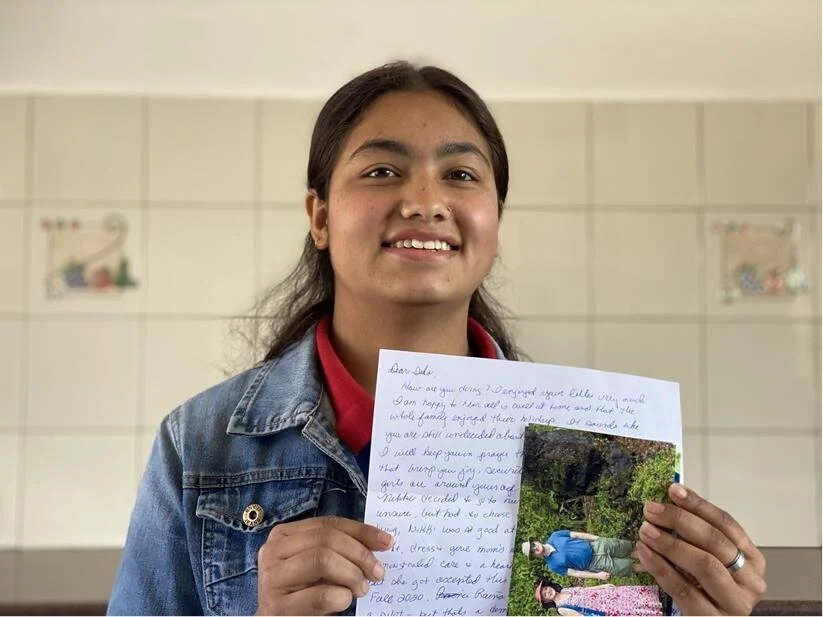 Dear Dila,
How are you doing? I enjoyed your letter very much.
I am happy to hear all is well at home and that the
whole family enjoyed their holidays. It sounds like
you are still undecided about
I will keep you in prayer th
that bring you joy, securi
girls are around your age
Nikki decided to go to nu
unsure, but had to choose
thing, Nikki was so good at
dress & give mom's
monstrated care & a hear
she got accepted this
Fall 2020. Raina
a pilot - but that's a dem